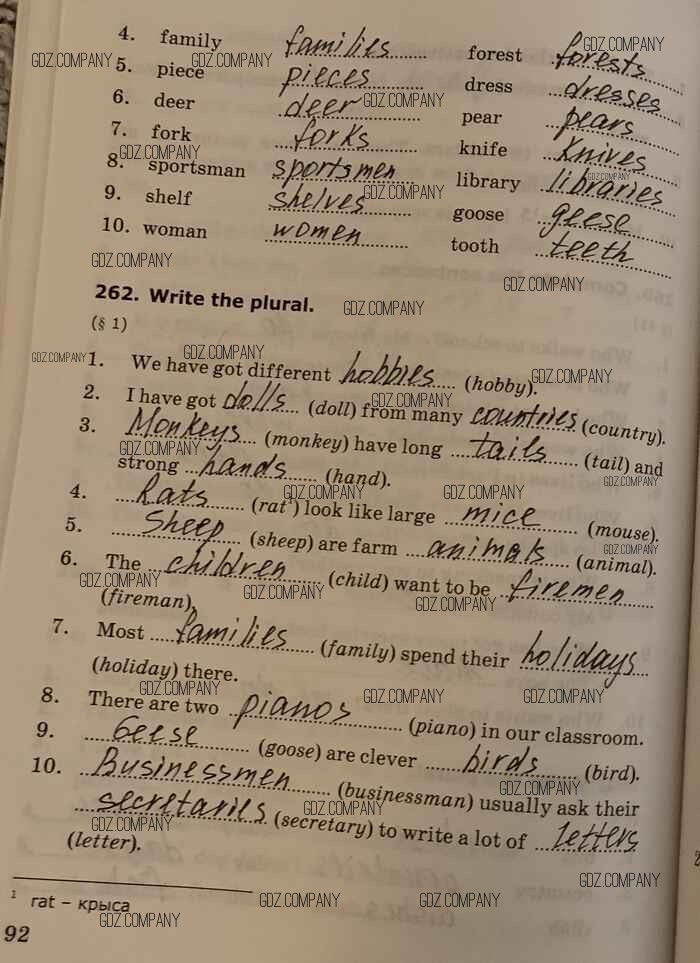 4. family families forest forests
5. piece pieces dress dresses
6. deer deer pear pears
7. fork forks knife knives
8. sportsman sportsmen library libraries
9. shelf shelves goose geese
10. woman women tooth teeth
262. Write the plural.
(§ 1)
1. We have got different hobbies (hobby).
2. I have got dolls (doll) from many countries (country).
3. Monkeys (monkey) have long tails (tail) and
strong hands (hand).
4. Rats (rat¹) look like large mice (mouse).
5. Sheep (sheep) are farm animals (animal).
6. The children (child) want to be firemen
(fireman).
7. Most families (family) spend their holidays
(holiday) there.
8. There are two pianos (piano) in our classroom.
9. Geese (goose) are clever birds (bird).
10. Businessmen (businessman) usually ask their
secretaries (secretary) to write a lot of letters
(letter).
¹ rat – крыса
92
GDZ.COMPANY